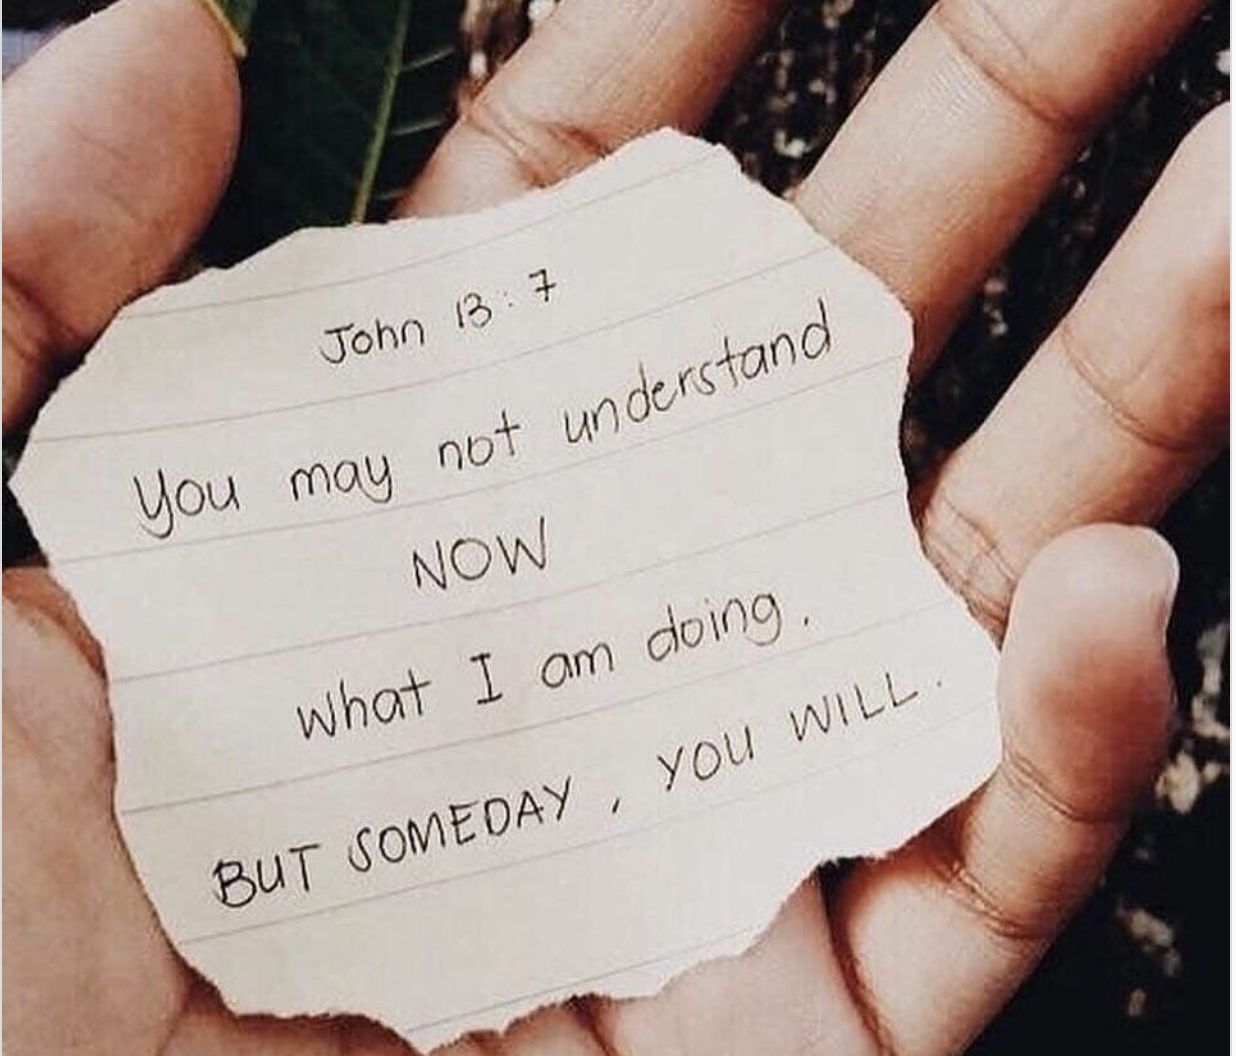 John 13:7
You may not understand
NOW
what I am doing.
BUT SOMEDAY, YOU WILL.